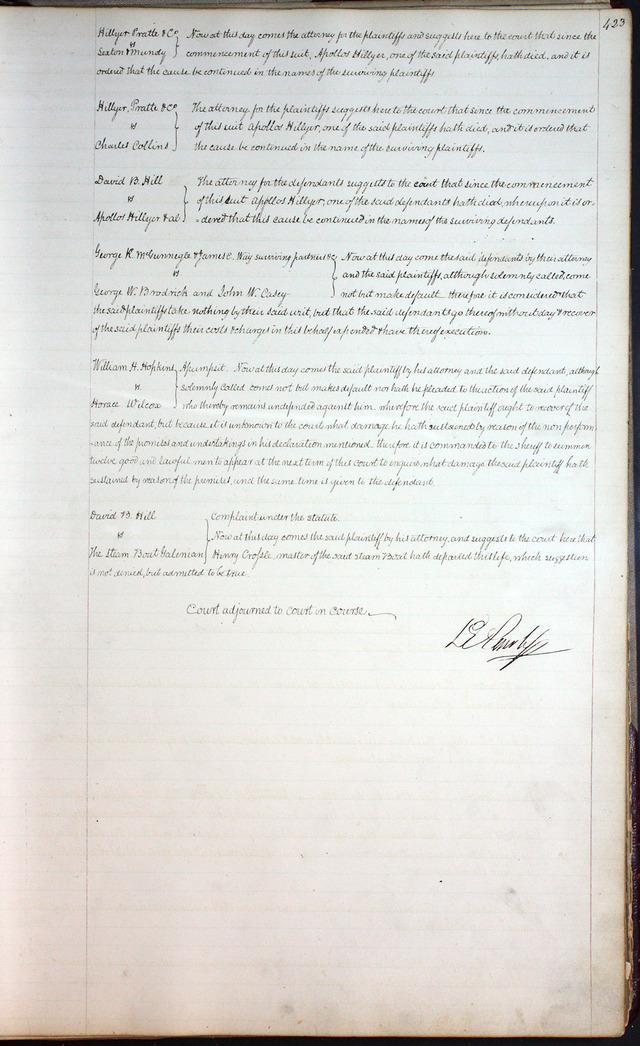 423
Hillyer Pratte & Co } Now at this day comes the attorney for the plaintiffs and suggests here to the court that since the
vs
Sexton & Mundy } commencement of this suit, Apollos Hillyer, one of the said plaintiffs, hath died, and it is
ordered that the cause be continued in the names of the surviving plaintiffs
Hillyer, Pratte & Co } The attorney for the plaintiffs suggests here to the court that since the commencement
vs } of this suit Apollos Hillyer, one of the said plaintiffs hath died, and it is ordered that
Charles Collins } the cause be continued in the name of the surviving plaintiffs.
David B. Hill } The attorney for the defendants suggests to the court that since the commencement
vs } of this suit Apollos Hillyer, one of the said defendants hath died, whereupon it is or-
Apollos Hillyer & al } =dered that this cause be continued in the names of the surviving defendants.
George K. McGunnegle & James C. Way surviving partners &c } Now at this day come the said defendants by their attorney
vs } and the said plaintiffs, although solemnly called, come
George W. Brodrick and John W. Casey } not but make default therefore it is considered that
the said plaintiffs take nothing by their said writ, but that the said defendants go thereof without day & recover
of the said plaintiffs their costs & charges in this behalf expended & have thereof execution.
William H. Hopkins } Assumpsit. Now at this day comes the said plaintiff by his attorney and the said defendant, although
vs } solemnly called comes not but makes default nor hath he pleaded to the action of the said plaintiff
Horace Wilcox } who thereby remains undefended against him. wherefore the said plaintiff ought to recover of the
said defendant, but because it is unknown to the court what damage he hath sustained by reason of the non perform
ance of the promises and undertakings in his declaration mentioned. therefore it is commanded to the sheriff to summon
twelve good and lawful men to appear at the next term of this court to enquire what damage the said plaintiff hath
sustained by reason of the premises, and the same time is given to the defendant.
David B. Hill } Complaint under the statute.
vs } Now at this day comes the said plaintiff by his attorney, and suggests to the court here that
The Steam Boat Galenian } Henry Crossle, master of the said steam Boat hath departed this life, which suggestion
is not denied, but admitted to be true.
Court adjourned to court in course